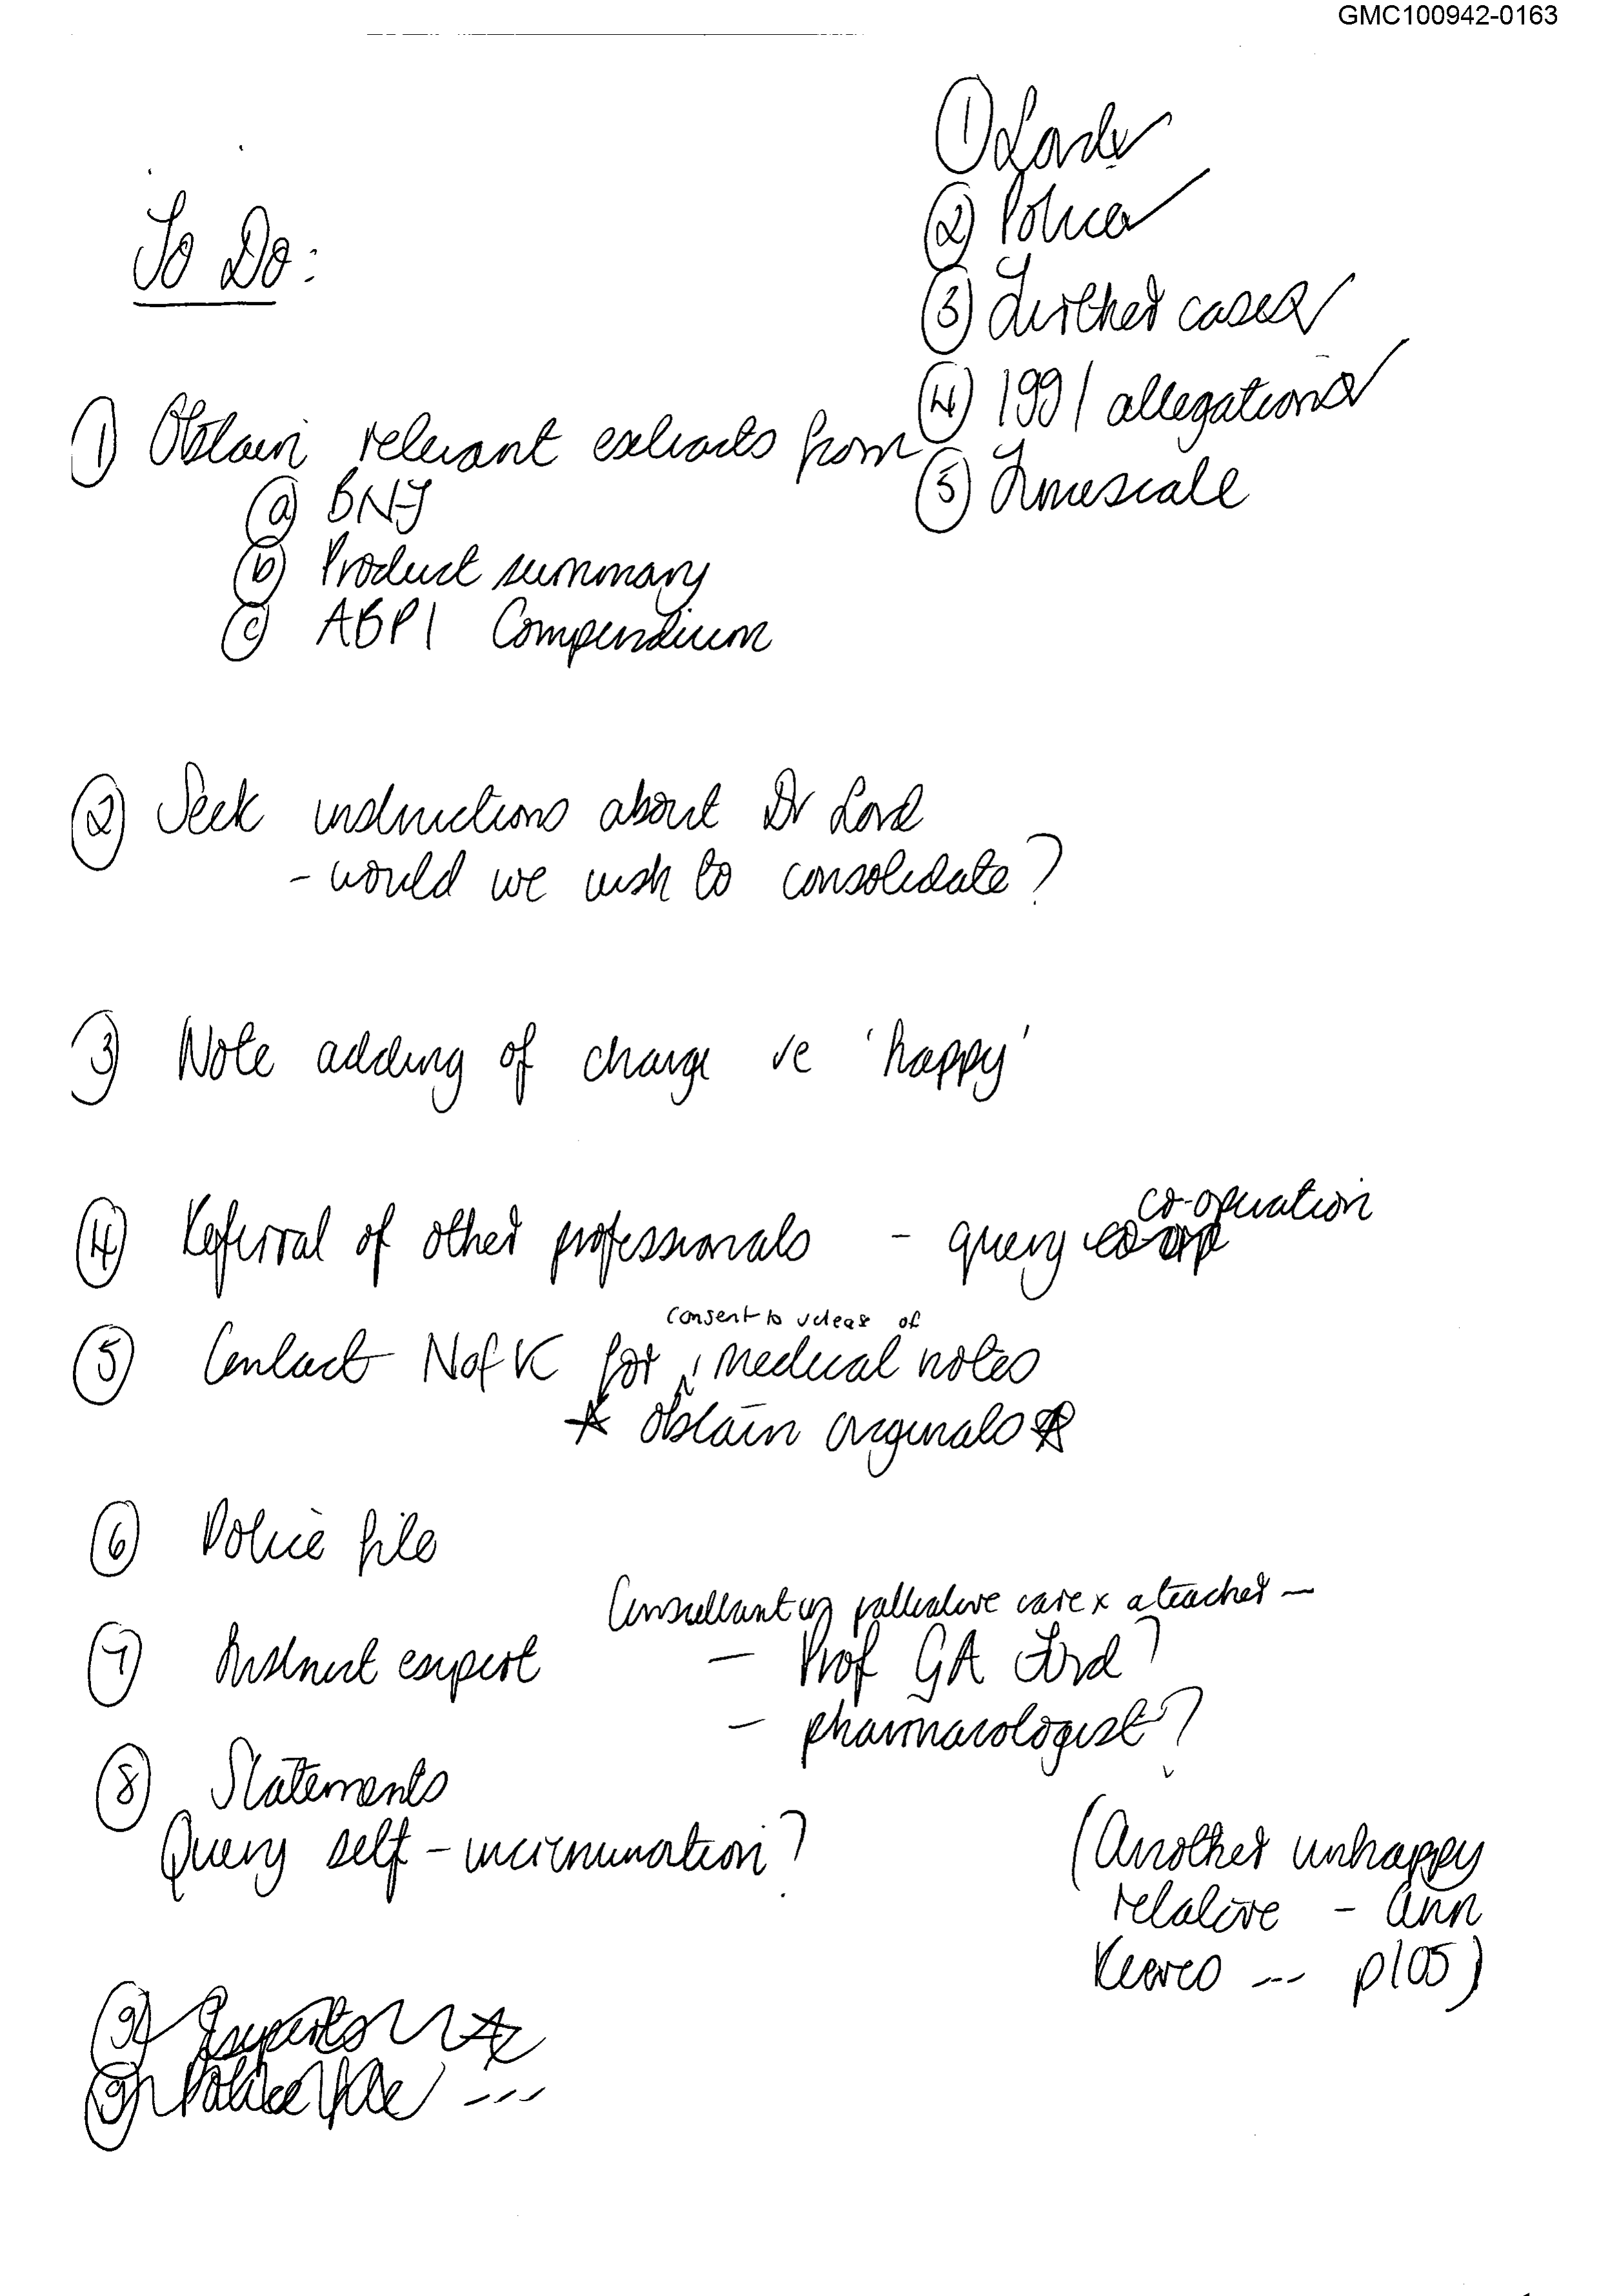 GMC100942-0163
① Lord ✓
② Police ✓
③ Further cases ✓
④ 1991 allegations ✓
⑤ Timescale
To Do:
① Obtain relevant extracts from
ⓐ BNF
ⓑ Product summary
ⓒ ABPI Compendium
② Seek instructions about Dr Lord
- would we wish to consolidate?
③ Note adding of charge re 'happy'
④ Referral of other professionals - query co-operation
consent to release of
⑤ Contact NofK for medical notes
* obtain originals *
⑥ Police file
Consultant in palliative care x a teacher -
⑦ Instruct expert - Prof GA Ford?
- pharmacologist?
⑧ Statements
Query self-incrimination?
(Another unhappy
relative - Ann
Reeves --- p105)
⑨ Experts
⑨ Police file ---